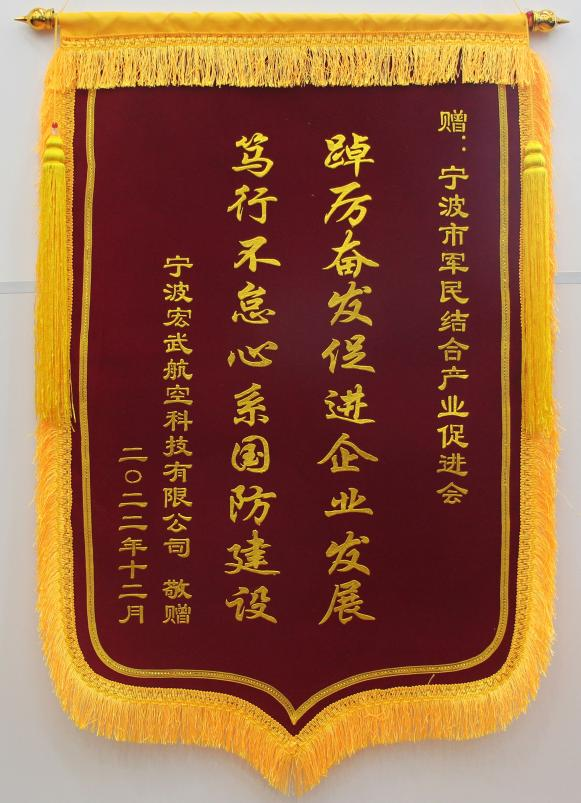 赠：宁波市军民结合产业促进会
踔厉奋发促进企业发展
笃行不怠心系国防建设
宁波宏武航空科技有限公司 敬赠
二〇二二年十二月